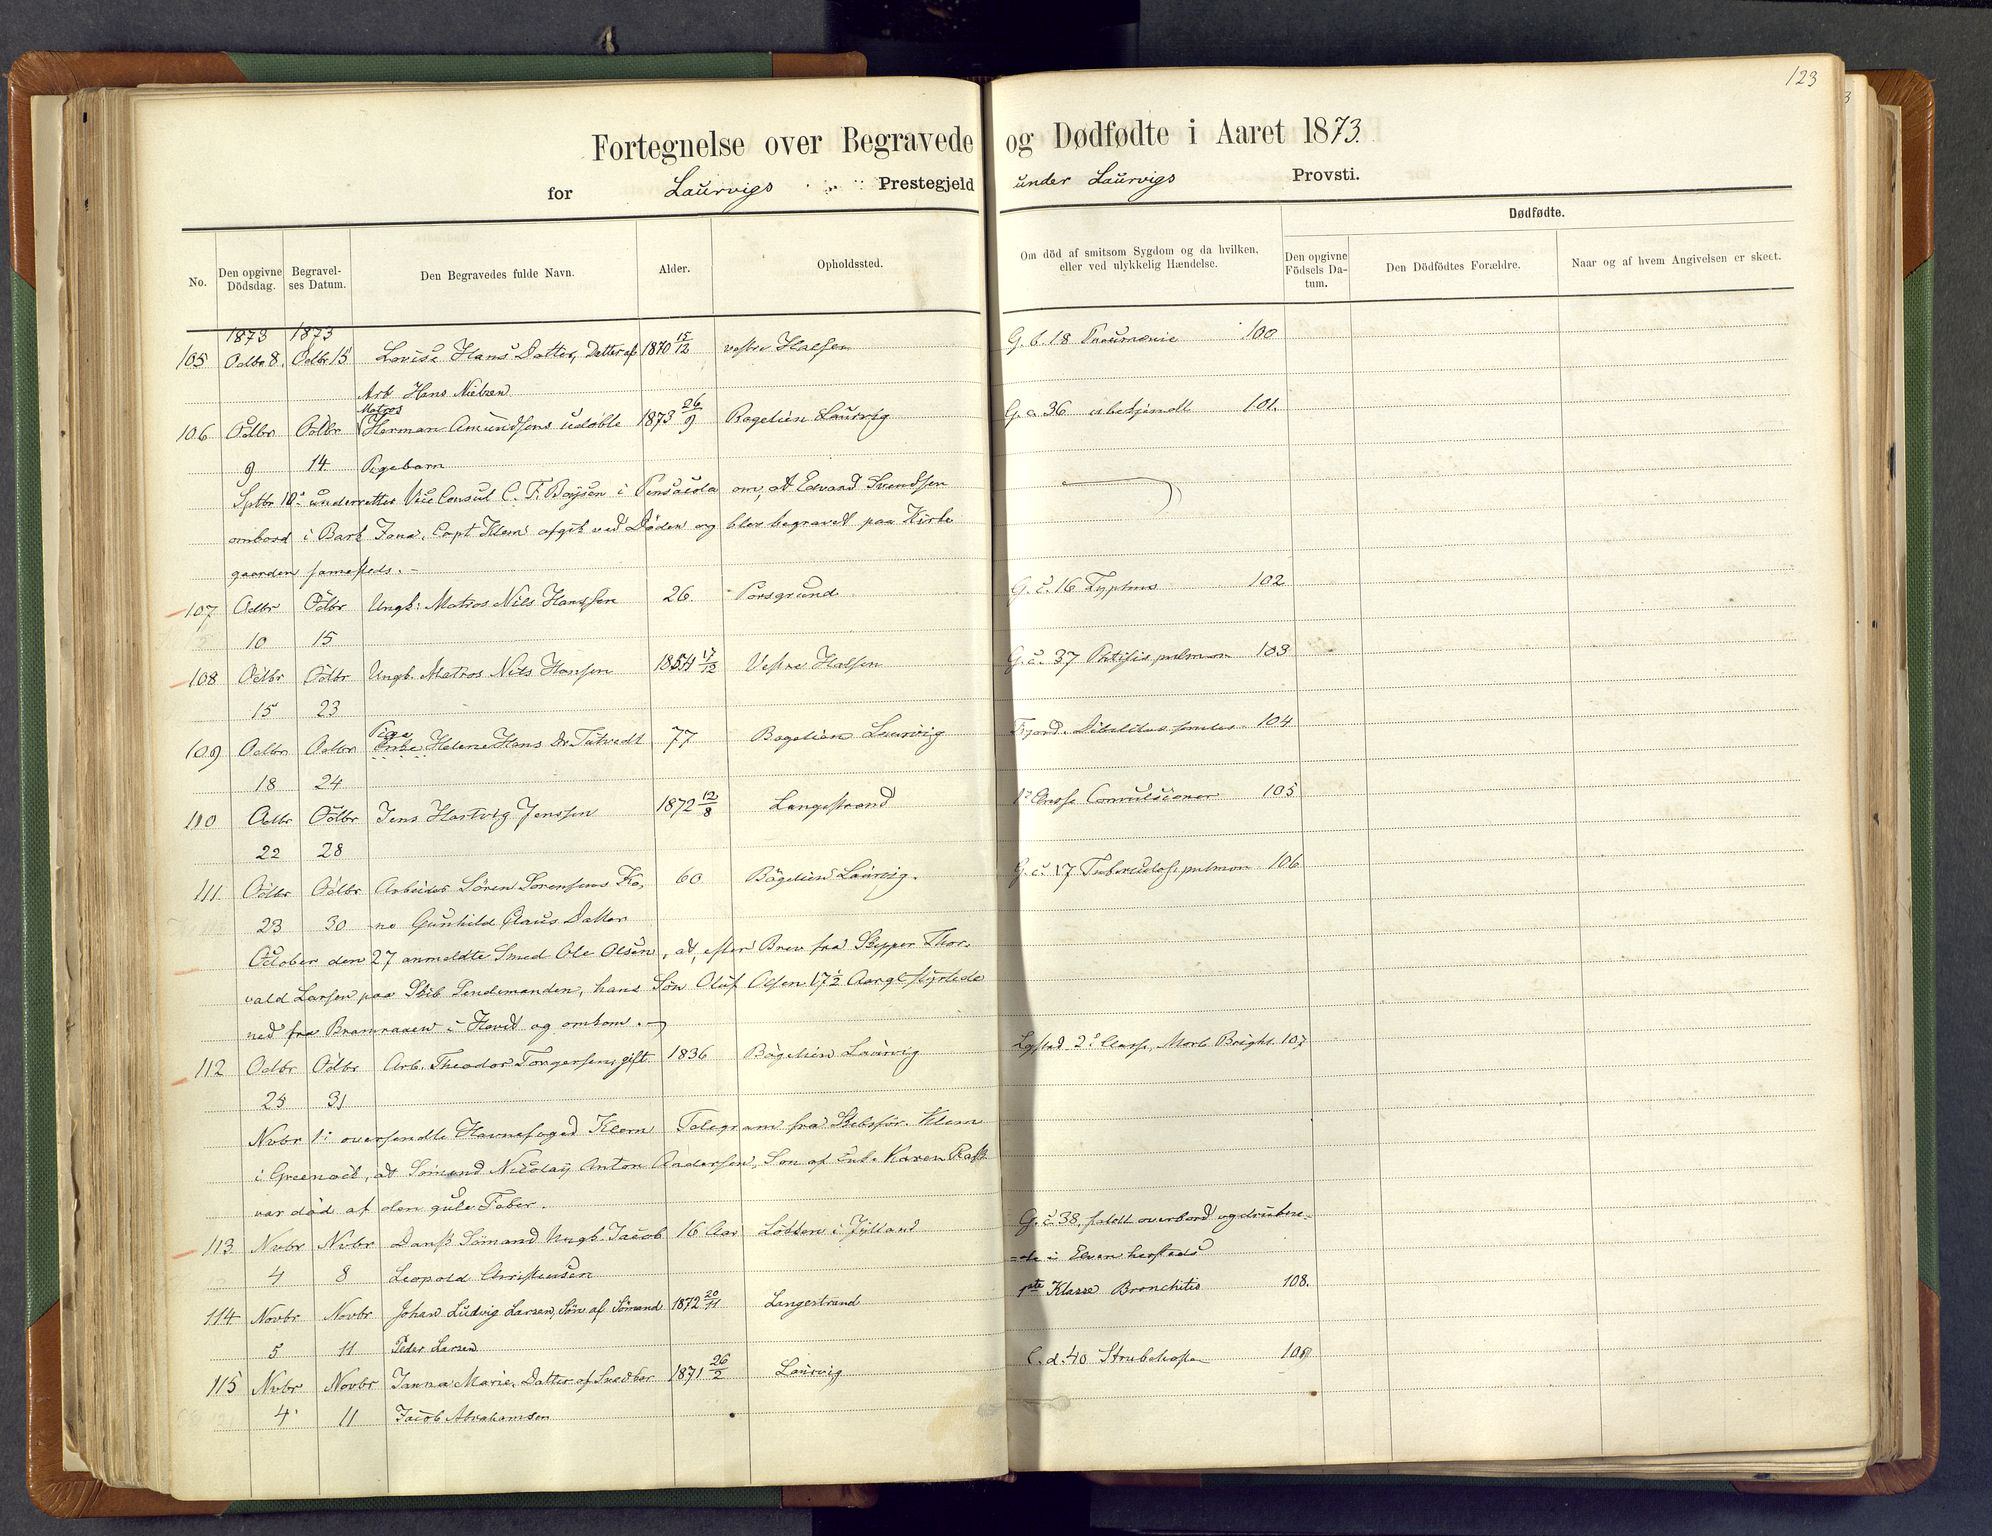 123
Fortegnelse over Begravede og Dødfødte i Aaret 1873.
for Laurvigs Prestegjeld under Laurvigs Provsti.
Dødfødte.
No.
Den opgivne Dödsdag.
Begravel-ses Datum.
Den Begravedes fulde Navn.
Alder.
Opholdssted.
Om död af smitsom Sygdom og da hvilken, eller ved ulykkelig Hændelse.
Den opgivne Födsels Da-tum.
Den Dödfödtes Forældre.
Naar og af hvem Angivelsen er skeet.
1873 1873
105 Octbr 8. Octbr 15 Lovise Hans Datter, Datter af 1870 15/12 vestre Halsen G. b. 18 Pneumonie 100
Arb Hans Nielsen
Matros
106 Octbr Octbr Herman Amundsens udøbte 1873 26/9 Bøgelien Laurvig G. c. 36 ubekjendt 101.
9 14 Pigebarn
Sptbr 10: underretter Vice Consul C. F. Boysen i Pensacola om, at Edvard Svendsen
ombord i Bark Jona, Capt Klem afgik ved Døden og blev begravet paa Kirke
gaarden samesteds. -
107 Octbr Octbr Ungk: Matros Nils Hanssen 26. Porsgrund G. c. 16 Typhus 102
10 15
108 Octbr Octbr Ungk. Matros Nils Hansen 1854 17/12 Vestre Halsen G. c. 37 Phtisis pulmon 103
15 23
Pige
109 Octbr Octbr Enke Helene Hans Dr Tutvedt 77 Bøgelien Laurvig Fjord. Debilitas senilis 104
18 24
110 Octbr Octbr Jens Hartvig Jenssen 1872 12/8 Langestrand 1ste Classe Convulsioner 105
22 28
111 Octbr Octbr Arbeider Sören Sørensens Ko, 60 Bøgelien Laurvig. G. c. 17 Tuberculosis pulmon 106
23 30 ne Gunhild Claus Datter
October den 27 anmeldte Smed Ole Olsen, at, efter Brev fra Skipper Thor-
vald Larsen paa Skib Sendemanden, hans Søn Oluf Olsen 17 1/2 Aar gl styrtede
ned fra Bramraaen i Havet og omkom. -
112 Octbr Octbr Arb. Theodor Torgersen, gift. 1836 Bøgelien Laurvig Lystad 2d Classe, Morb Brighti. 107
25 31
Nvbr 1: oversendte Havnefoged Klem Telegram fra Skibsför. Klem
i Greenock, at Sømand Nicolay Anton Andersen, Søn af Enk. Karen
var död af den gule Feber.
113 Nvbr Nvbr Dansk Sömand Ungk. Jacob 16 Aar Løkken i Jylland G. c. 38, faldt overbord og drukne-
4 8 Leopold Christensen =de i Elven hersteds
114 Novbr Novbr Johan Ludvig Larsen, Søn af Sömand 1872 20/11 Langestrand 1ste Klasse Bronchitis 108.
5 11 Peder Larsen
115 Nvbr Novbr Janna Marie, Datter af Snedker 1871 26/2 Laurvig C. d. 40 Strubehoste 109
4 11 Jacob Abrahamsen